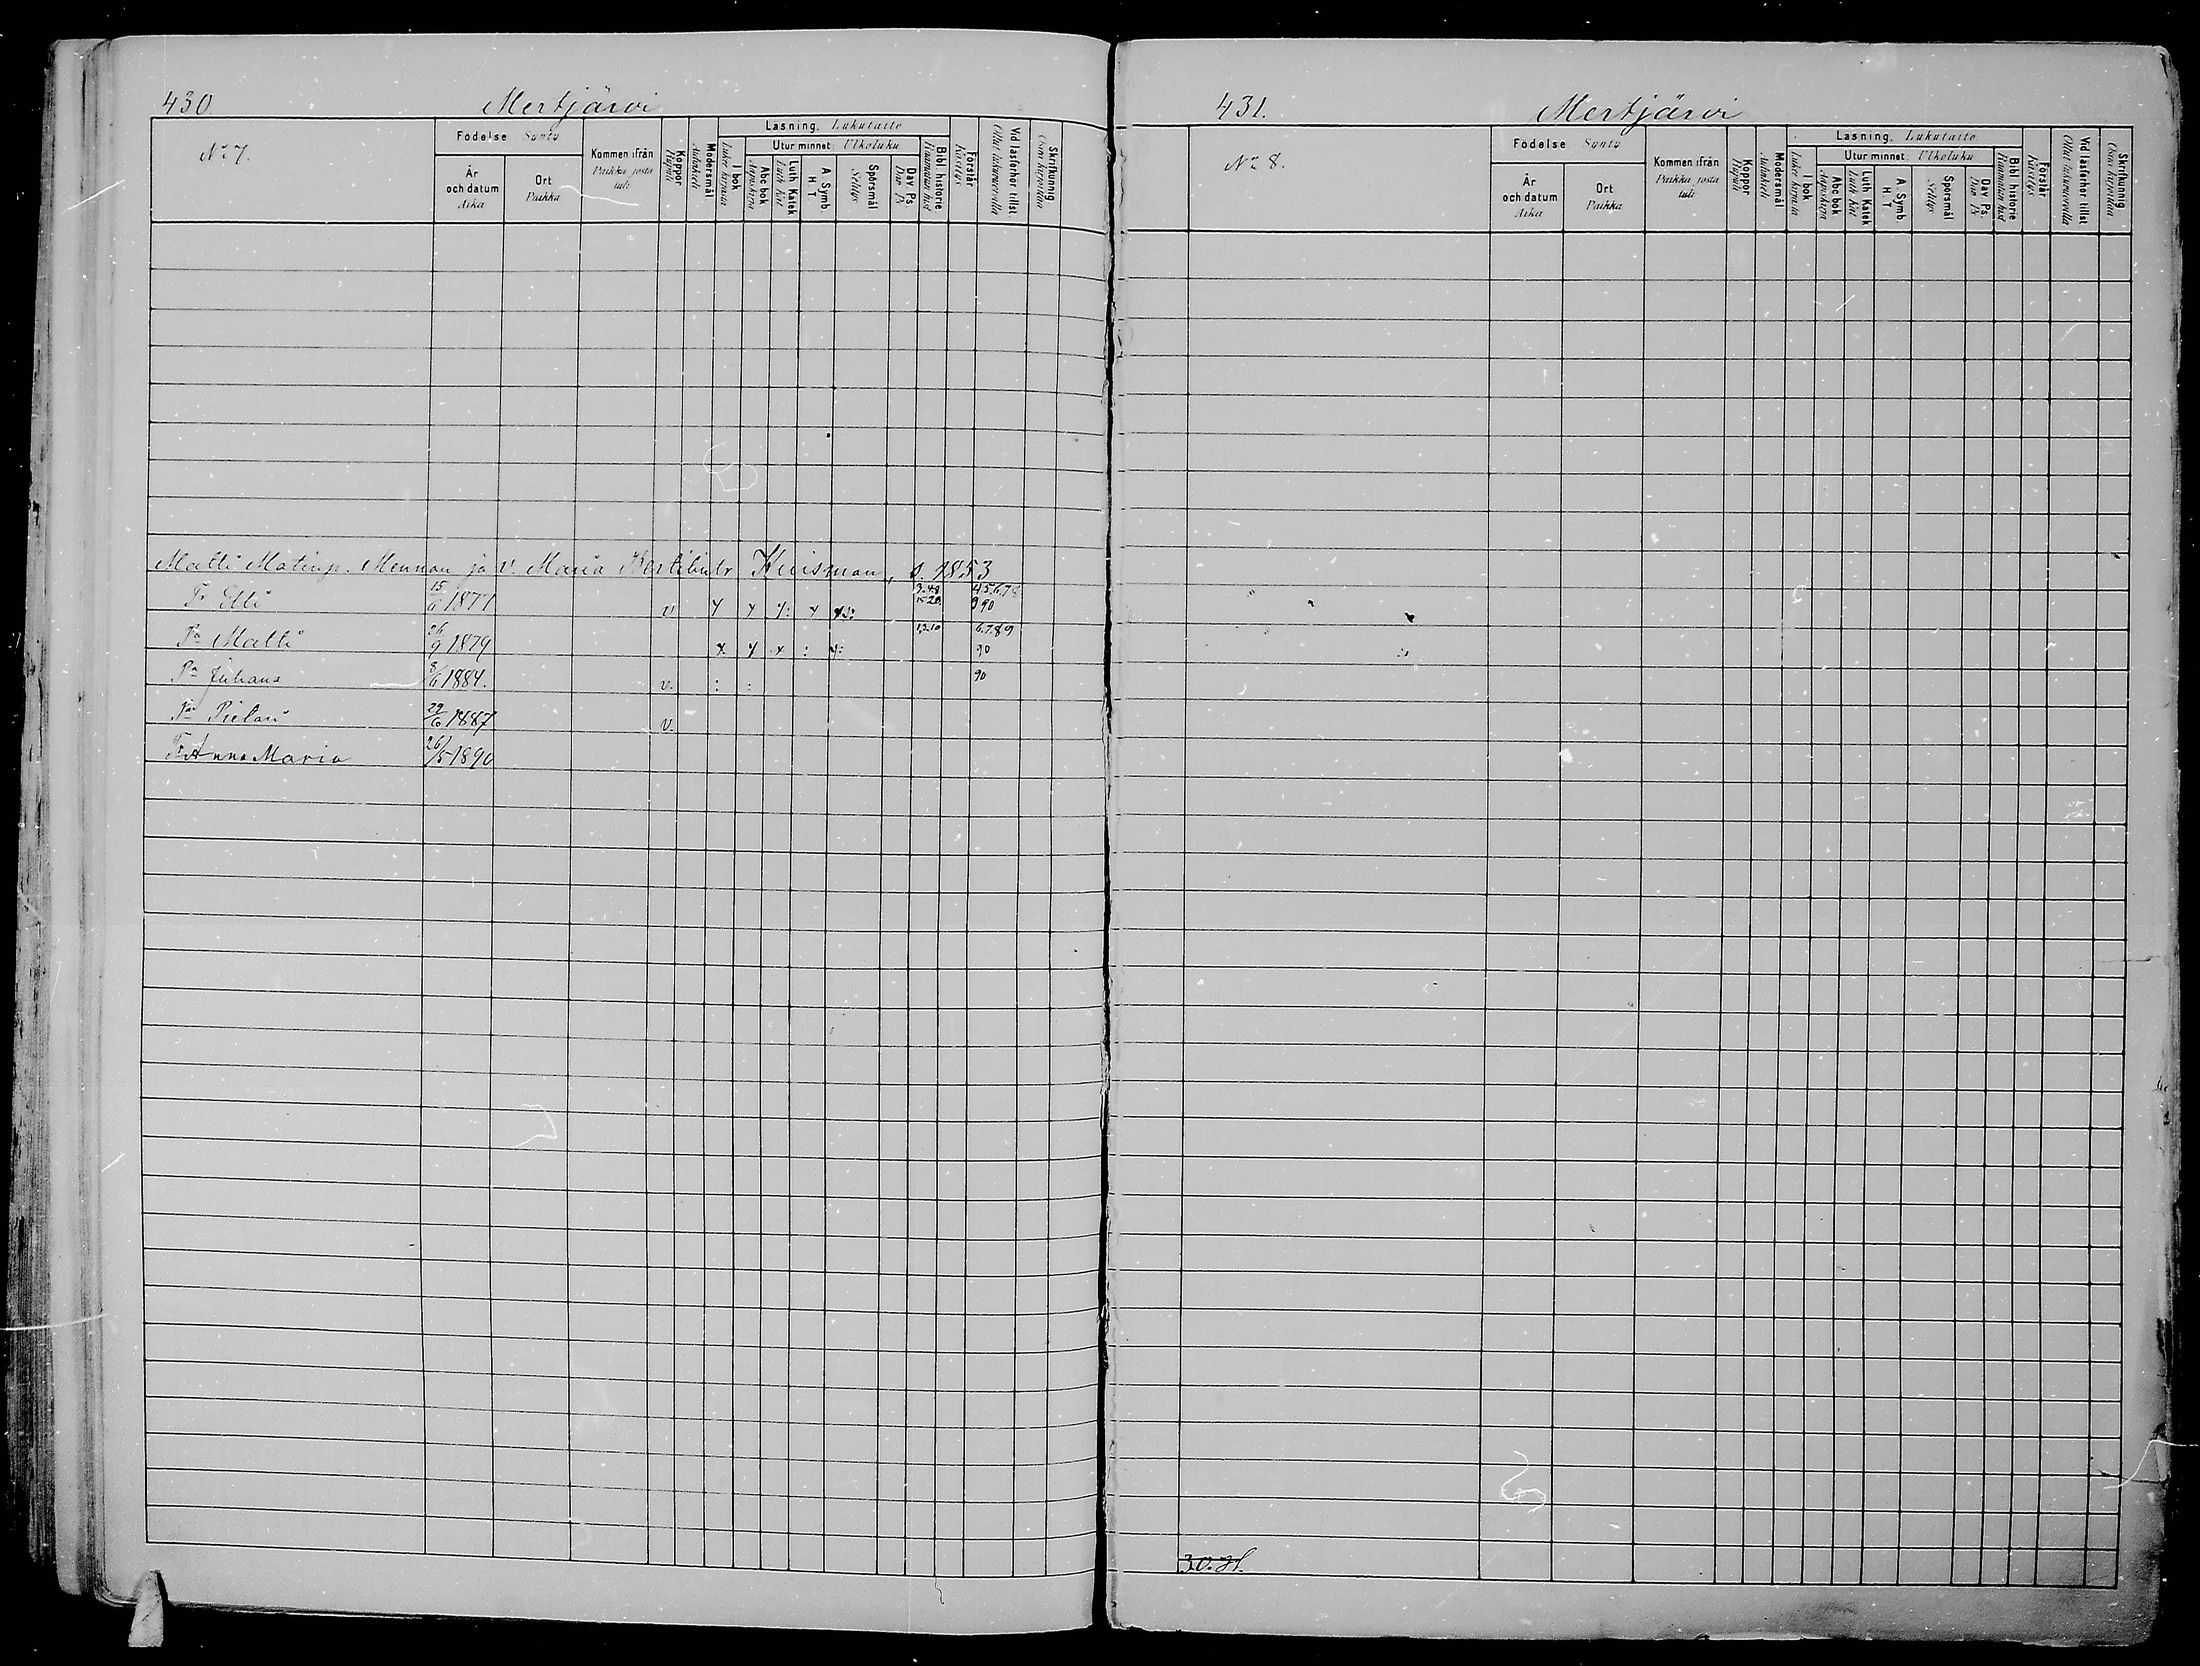 430. Mertjärvi
No 7.
Födelse Synty
År och datum Aika
Ort Paikka
Kommen ifrån Paikka josta tuli
Koppor Rupuli
Modersmål Äidinkieli
Läsning. Lukutaito
I bok Lukee kirjasta
Utur minnet: Ulkoluku
Abc bok Aapiskirja
Luth Katek Luth Kat
A. Symb. H. T.
Spörsmål Selitys
Dav. Ps. Dav Ps
Bibl historie Raamatun hist
Förstår Käsitys
Vid läsförhör tillst Ollut lukuluvuilla
Skrifkunnig Osaa kirjoittaa
Matti Matinp. Mennon ja v. Maria Pertilintr. Kuisman, s. 1853
Tr Elli 15/6 1877 v 3.4.8 15.20. 4.5.6.7.8 9 90
Pa Matti 26/9 1879 1,3.10 6.7.89 90
Pa Juhana 8/6 1884. v. 90
Pa Pietari 29/6 1887 v.
Tr Anna Maria 26/5 1890
431. Mertjärvi
No 8.
Födelse Synty
År och datum Aika
Ort Paikka
Kommen ifrån Paikka josta tuli
Koppor Rupuli
Modersmål Äidinkieli
Läsning. Lukutaito
I bok Lukee kirjasta
Utur minnet: Ulkoluku
Abc bok Aapiskirja
Luth Katek Luth Kat
A. Symb. H. T.
Spörsmål Selitys
Dav. Ps. Dav Ps
Bibl historie Raamatun hist
Förstår Käsitys
Vid läsförhör tillst
Skrifkunnig Osaa kirjoittaa